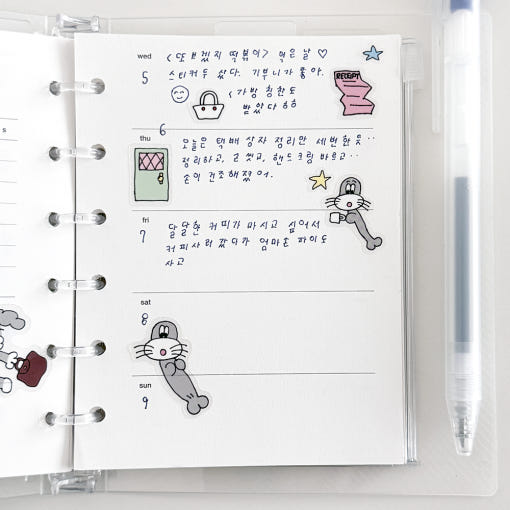 wed
<또보겠지 떡볶이> 먹은날 ♡
5 스티커두 샀다. 기부니가 좋아.
RECEIPT
<가방 칭찬도
받았다 ㅎㅎ
thu 6
오늘은 택배 상자 정리만 세번한듯..
정리하고, 손 씻고, 핸드크림 바르고..
손이 건조해졌어.
fri
7 달달한 커피가 마시고 싶어서
커피사러 갔다가 엄마촌 파이도
사고
sat
8
sun
9
s